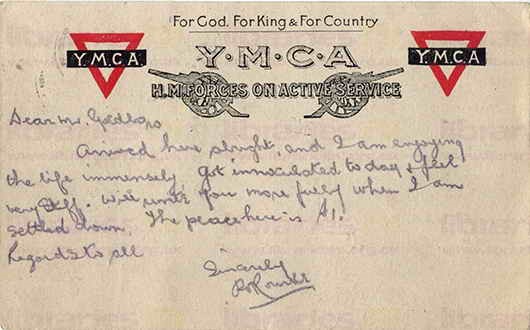 For God. For King & For Country
Y.M.C.A.
Y·M·C·A
Y.M.C.A.
H.M. FORCES ON ACTIVE SERVICE
Dear Mr
Arrived here alright, and I am enjoying
the life immensely Got innoculated to day & feel
very stiff. Will write you more fully when I am
settled down. The peace here is A1.
Regards to all
Sincerely